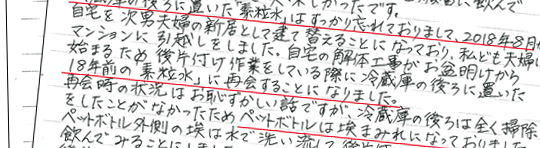 の後ろに置いた「素粒水」はすっかり忘れておりまして、2018年8月
自宅を次男夫婦の新居として建て替えることになっており、私ども夫婦
マンションに引越しをしました。自宅の解体工事がお盆明けから
始まるため後片付け作業をしている際に冷蔵庫の後ろに置いた
18年前の「素粒水」に再会することになりました。
再会時の状況はお恥ずかしい話ですが、冷蔵庫の後ろは全く掃除
をしたことがなかったためペットボトルは埃まみれになっておりました
ペットボトル外側の埃は水で洗い流して
飲んでみることにしました